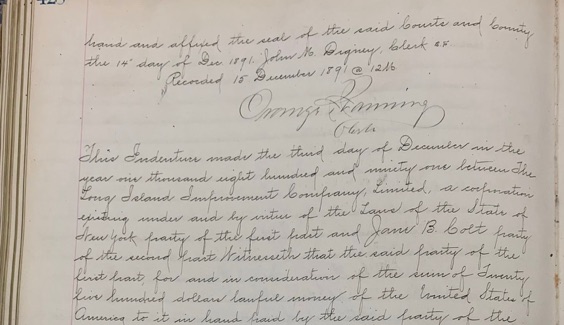 hand and affixed the seal of the said Courts and County
the 14" day of Dec 1891. John M. Digney, Clerk
Recorded 15 December 1891 @ 12 M
Clerk
This Indenture made the third day of December in the
year one thousand eight hundred and ninety one between The
Long Island Improvement Company, Limited, a corporation
existing under and by virtue of the Laws of the State of
New York party of the first part and Jane B. Colt party
of the second part Witnesseth that the said party of the
first part for and in consideration of the sum of Twenty
five hundred dollars lawful money of the United States of
America to it in hand paid by the said party of the